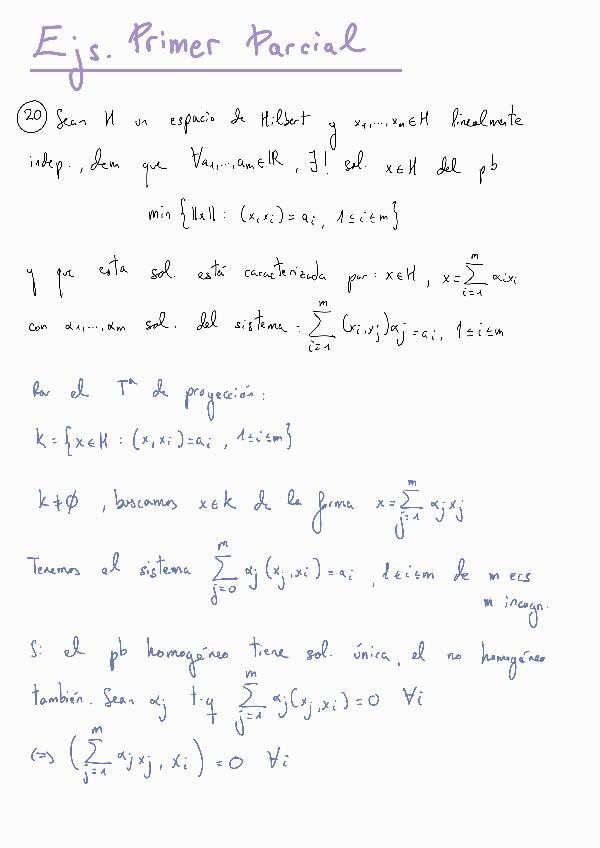 Ejs. Primer Parcial
20 Sean H un espacio de Hilbert y x₁,...,xₘ∈H linealmente
indep., dem que ∀a₁,...,aₘ∈ℝ, ∃! sol. x∈H del pb
min {||x|| : (x,xᵢ)=aᵢ, 1≤i≤m}
y que esta sol. está caracterizada por: x∈H, x=∑ᵢ₌₁ᵐ αᵢxᵢ
con α₁,...,αₘ sol. del sistema: ∑ᵢ₌₁ᵐ (xᵢ,xⱼ)αⱼ=aᵢ, 1≤i≤m
Por el Tᵃ de proyección:
K={x∈H : (x,xᵢ)=aᵢ, 1≤i≤m}
K≠∅, buscamos x∈K de la forma x=∑ⱼ₌₁ᵐ αⱼxⱼ
Tenemos el sistema ∑ⱼ₌₀ᵐ αⱼ(xⱼ,xᵢ)=aᵢ, 1≤i≤m de m ecs
m incogn.
Si el pb homogéneo tiene sol. única, el no homogéneo
también. Sean αⱼ t.q ∑ⱼ₌₁ᵐ αⱼ(xⱼ,xᵢ)=0 ∀i
(=) (∑ⱼ₌₁ᵐ αⱼxⱼ, xᵢ)=0 ∀i